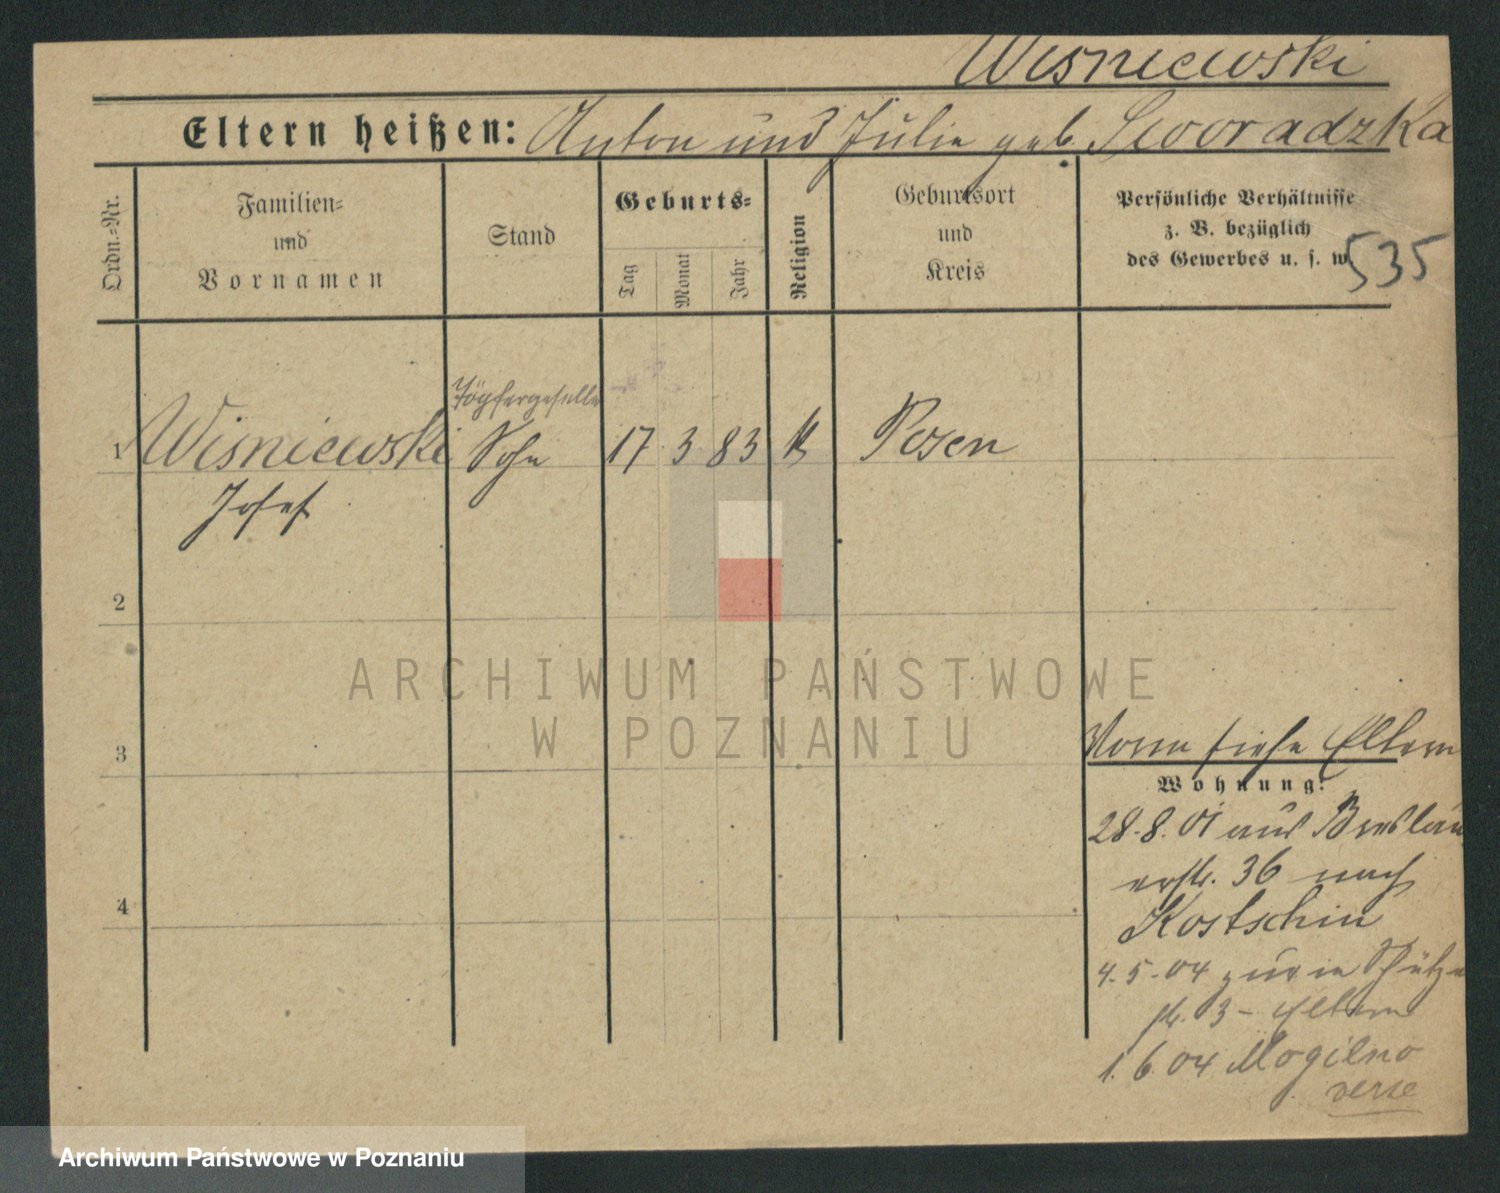 Wisniewski
Eltern heißen: Anton und Julie geb. Sworadzka
Ordn.-Nr.
Familien-
und
Vornamen
Stand
Geburts-
Tag
Monat
Jahr
Religion
Geburtsort
und
Kreis
Persönliche Verhältnisse
z. B. bezüglich
des Gewerbes u. s. w.
535
Töpfergeselle
1 Wisniewski Sohn 17 3 83 K Posen
Josef
2
3
4
ARCHIWUM PAŃSTWOWE
W POZNANIU
Vorm siehe Eltern
Wohnung:
28.8.01 aus Breslau
36 nach
Kostschin
4.5.04 zur in Schütz
str. 3 - Eltern
1.6.04 Mogilno
verse
Archiwum Państwowe w Poznaniu